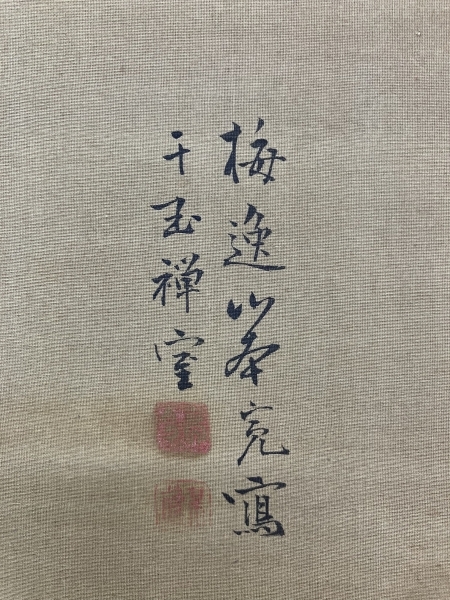 梅逸山本亮寫
于玉禅室